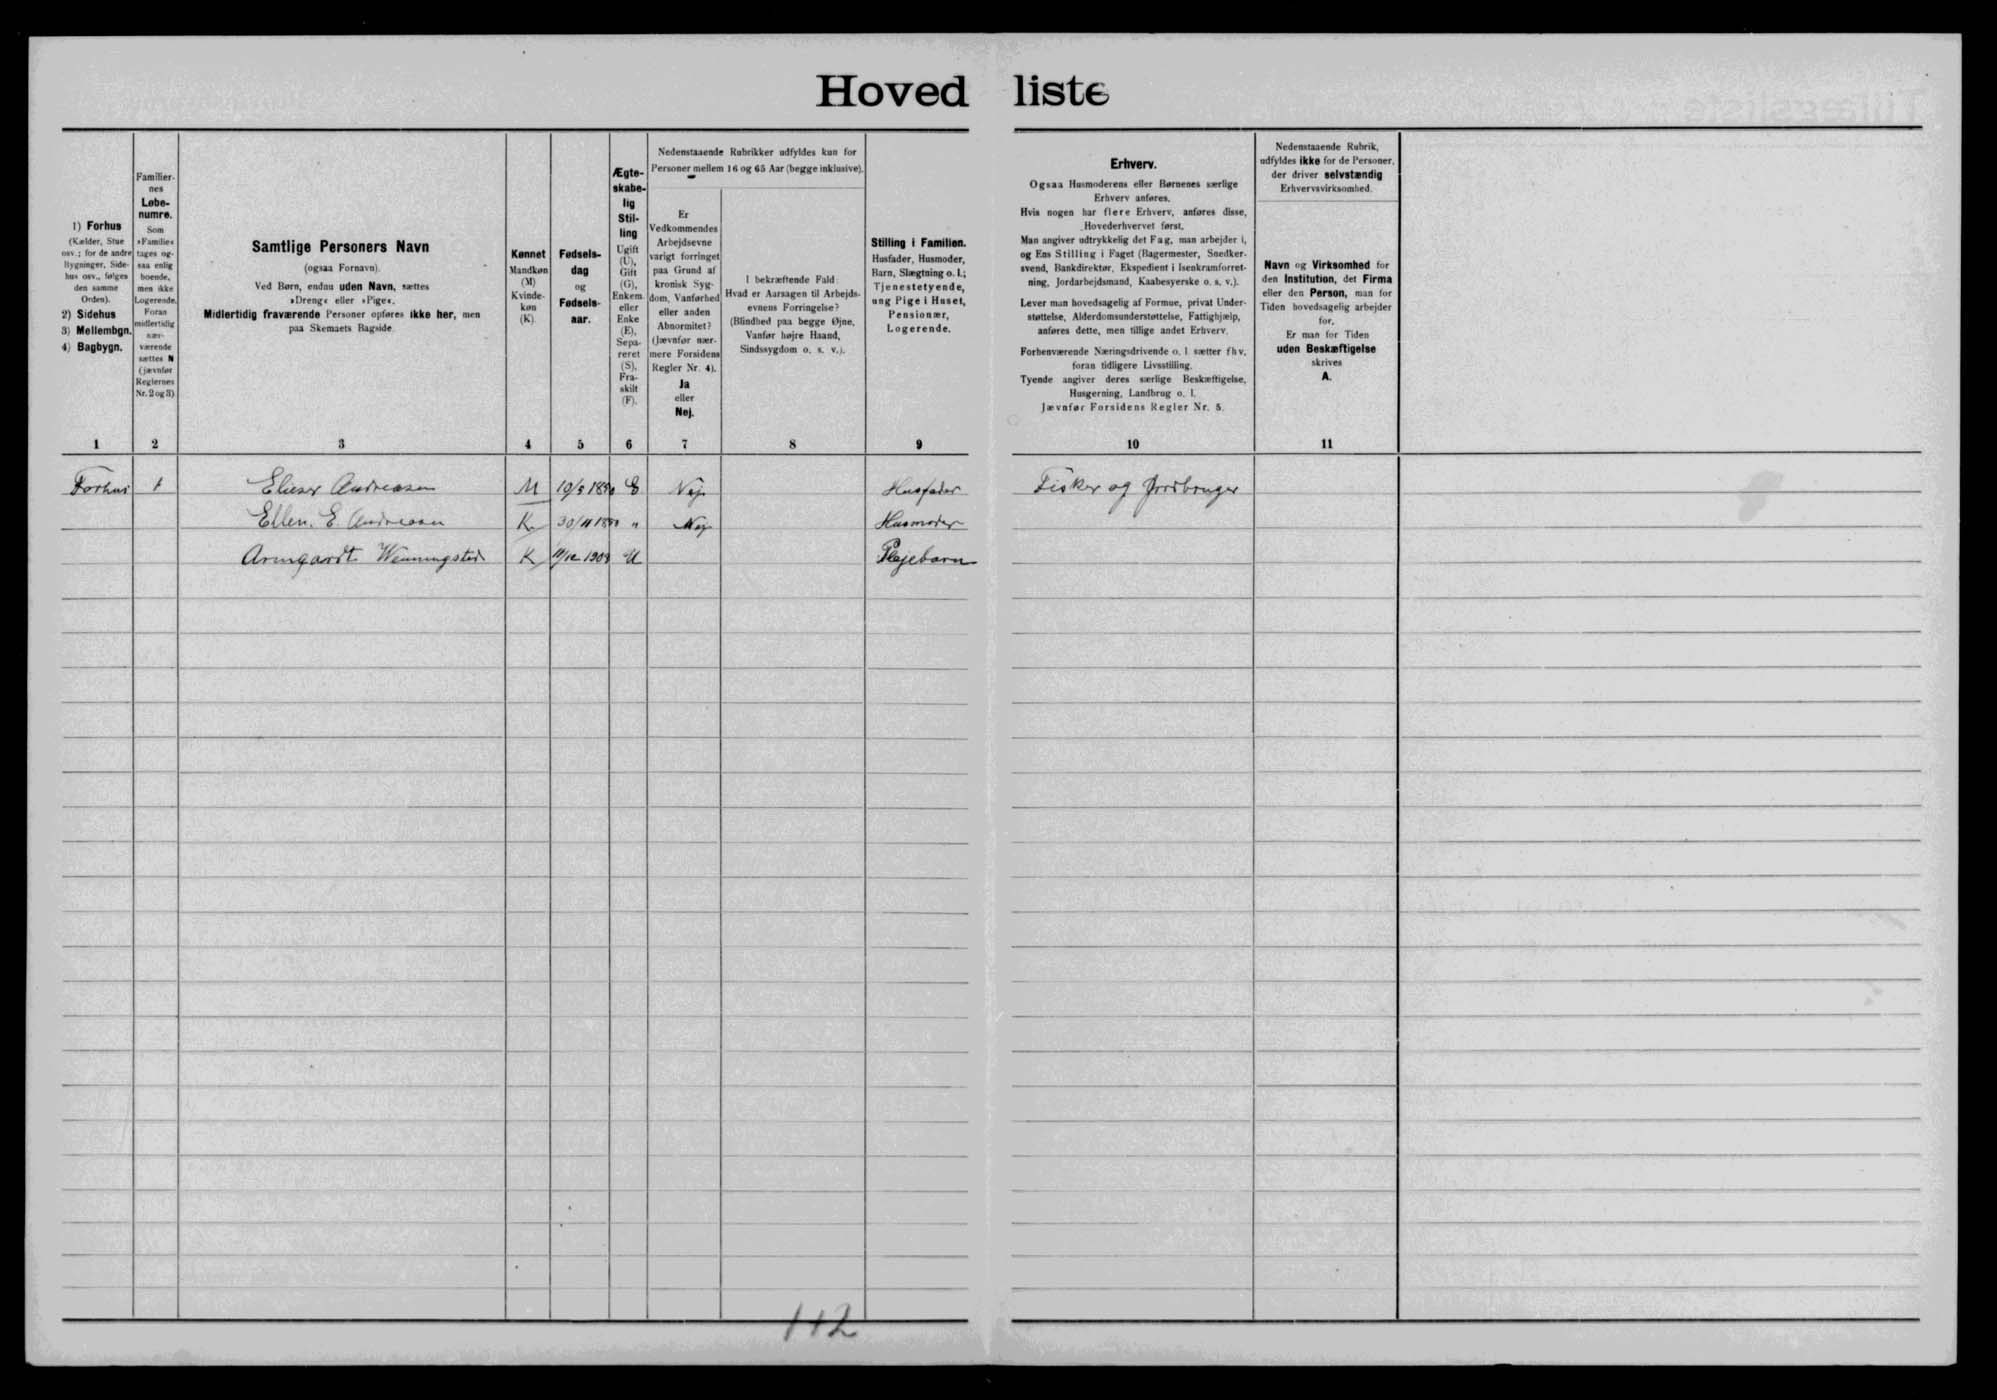 Hovedliste
1) Forhus
(Kælder, Stue
osv.; for de andre
Bygninger, Side-
hus osv., følges
den samme
Orden).
2) Sidehus
3) Mellembgn.
4) Bagbygn.
Familier-
nes
Løbe-
numre.
Som
»Familie«
tages og-
saa enlig
boende,
men ikke
Logerende.
Foran
midlertidig
nær-
værende
sættes N
(jævnfør
Reglernes
Nr. 2 og 3)
Samtlige Personers Navn
(ogsaa Fornavn).
Ved Børn, endnu uden Navn, sættes
»Dreng« eller »Pige«.
Midlertidig fraværende Personer opføres ikke her, men
paa Skemaets Bagside.
Kønnet
Mandkøn
(M)
Kvinde-
køn
(K).
Fødsels-
dag
og
Fødsels-
aar.
Ægte-
skabe-
lig
Stil-
ling
Ugift
(U),
Gift
(G),
Enkem.
eller
Enke
(E),
Sepa-
reret
(S),
Fra-
skilt
(F).
Nedenstaaende Rubrikker udfyldes kun for
Personer mellem 16 og 65 Aar (begge inklusive).
Er
Vedkommendes
Arbejdsevne
varigt forringet
paa Grund af
kronisk Syg-
dom, Vanførhed
eller anden
Abnormitet?
(Jævnfør nær-
mere Forsidens
Regler Nr. 4).
Ja
eller
Nej.
I bekræftende Fald:
Hvad er Aarsagen til Arbejds-
evnens Forringelse?
(Blindhed paa begge Øjne,
Vanfør højre Haand,
Sindssygdom o. s. v.).
Stilling i Familien.
Husfader, Husmoder,
Barn, Slægtning o. l.;
Tjenestetyende,
ung Pige i Huset,
Pensionær,
Logerende.
Erhverv.
Ogsaa Husmoderens eller Børnenes særlige
Erhverv anføres.
Hvis nogen har flere Erhverv, anføres disse,
Hovederhvervet først.
Man angiver udtrykkelig det Fag, man arbejder i,
og Ens Stilling i Faget (Bagermester, Snedker-
svend, Bankdirektør, Ekspedient i Isenkramforret-
ning, Jordarbejdsmand, Kaabesyerske o. s. v.).
Lever man hovedsagelig af Formue, privat Under-
støttelse, Alderdomsunderstøttelse, Fattighjælp,
anføres dette, men tillige andet Erhverv.
Forhenværende Næringsdrivende o. l. sætter fhv.
foran tidligere Livsstilling.
Tyende angiver deres særlige Beskæftigelse,
Husgerning, Landbrug o. l.
Jævnfør Forsidens Regler Nr. 5.
Nedenstaaende Rubrik,
udfyldes ikke for de Personer,
der driver selvstændig
Erhvervsvirksomhed.
Navn og Virksomhed for
den Institution, det Firma
eller den Person, man for
Tiden hovedsagelig arbejder
for.
Er man for Tiden
uden Beskæftigelse
skrives
A.
1 2 3 4 5 6 7 8 9 10 11
Forhus 1 Elieser Andreasen M 19/5 G Nej Husfader Fisker og Jordbruger
Ellen. E. Andreasen K 30/11 " Nej Husmoder
Armgardt Wenningsted K 11/12 1909 U Plejebarn
112